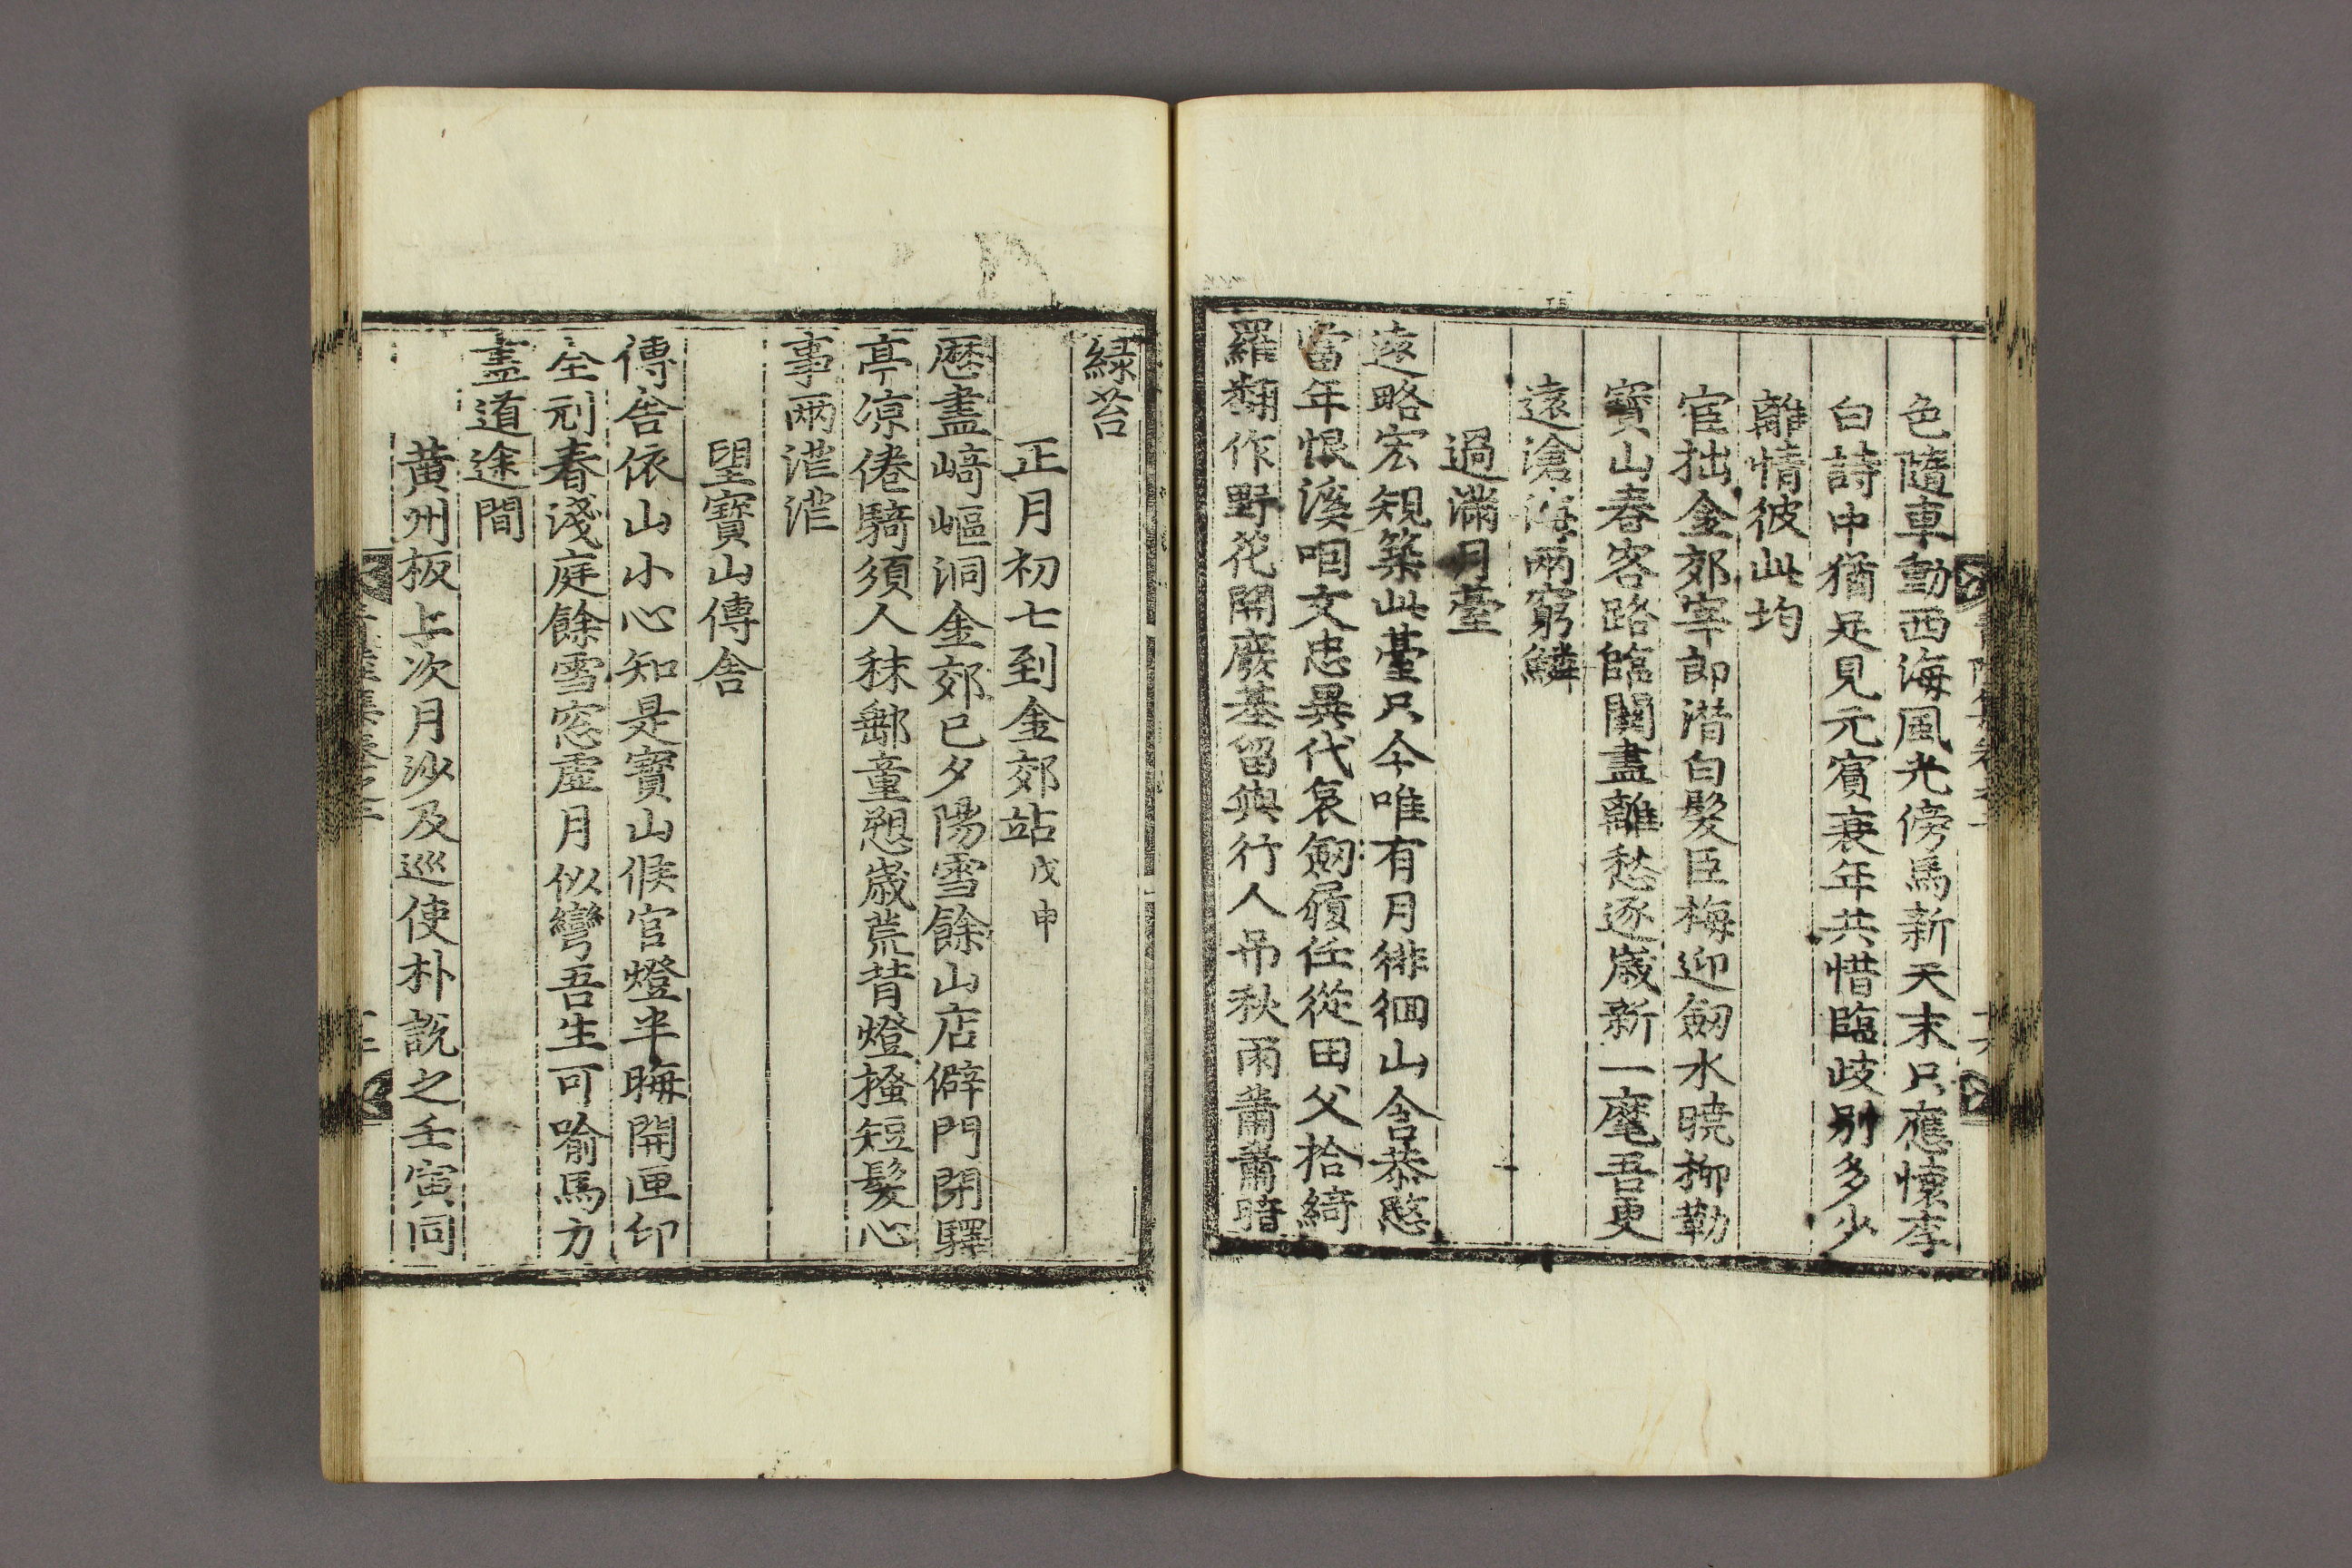 色隨車動西海風光傍馬新天末只應懷李
白詩中猶足見元賓衰年共惜臨歧別多少
離情彼此均
宦拙金郊宰郎潜白髮臣梅迎劒水曉柳勒
寶山春客路臨關盡離愁逐歲新一麾吾更
遠滄海兩窮鱗
過滿月臺
遠略宏規築此臺只今唯有月徘徊山含恭愍
當年恨溪咽文忠異代哀劒履任從田父拾綺
羅翻作野花開廢基留與行人吊秋雨蕭蕭暗
綠苔
正月初七到金郊站戊申
歷盡﨑嶇洞金郊已夕陽雪餘山店僻門閉驛
亭凉倦騎須人秣郵童愬歲荒昔燈搔短髮心
事兩茫茫
望寶山傳舍
傳舍依山小心知是寶山候官燈半晦開匣印
全刓春淺庭餘雪窓虛月似彎吾生可喩馬方
盡道途間
黃州板上次月沙及巡使朴說之壬寅同